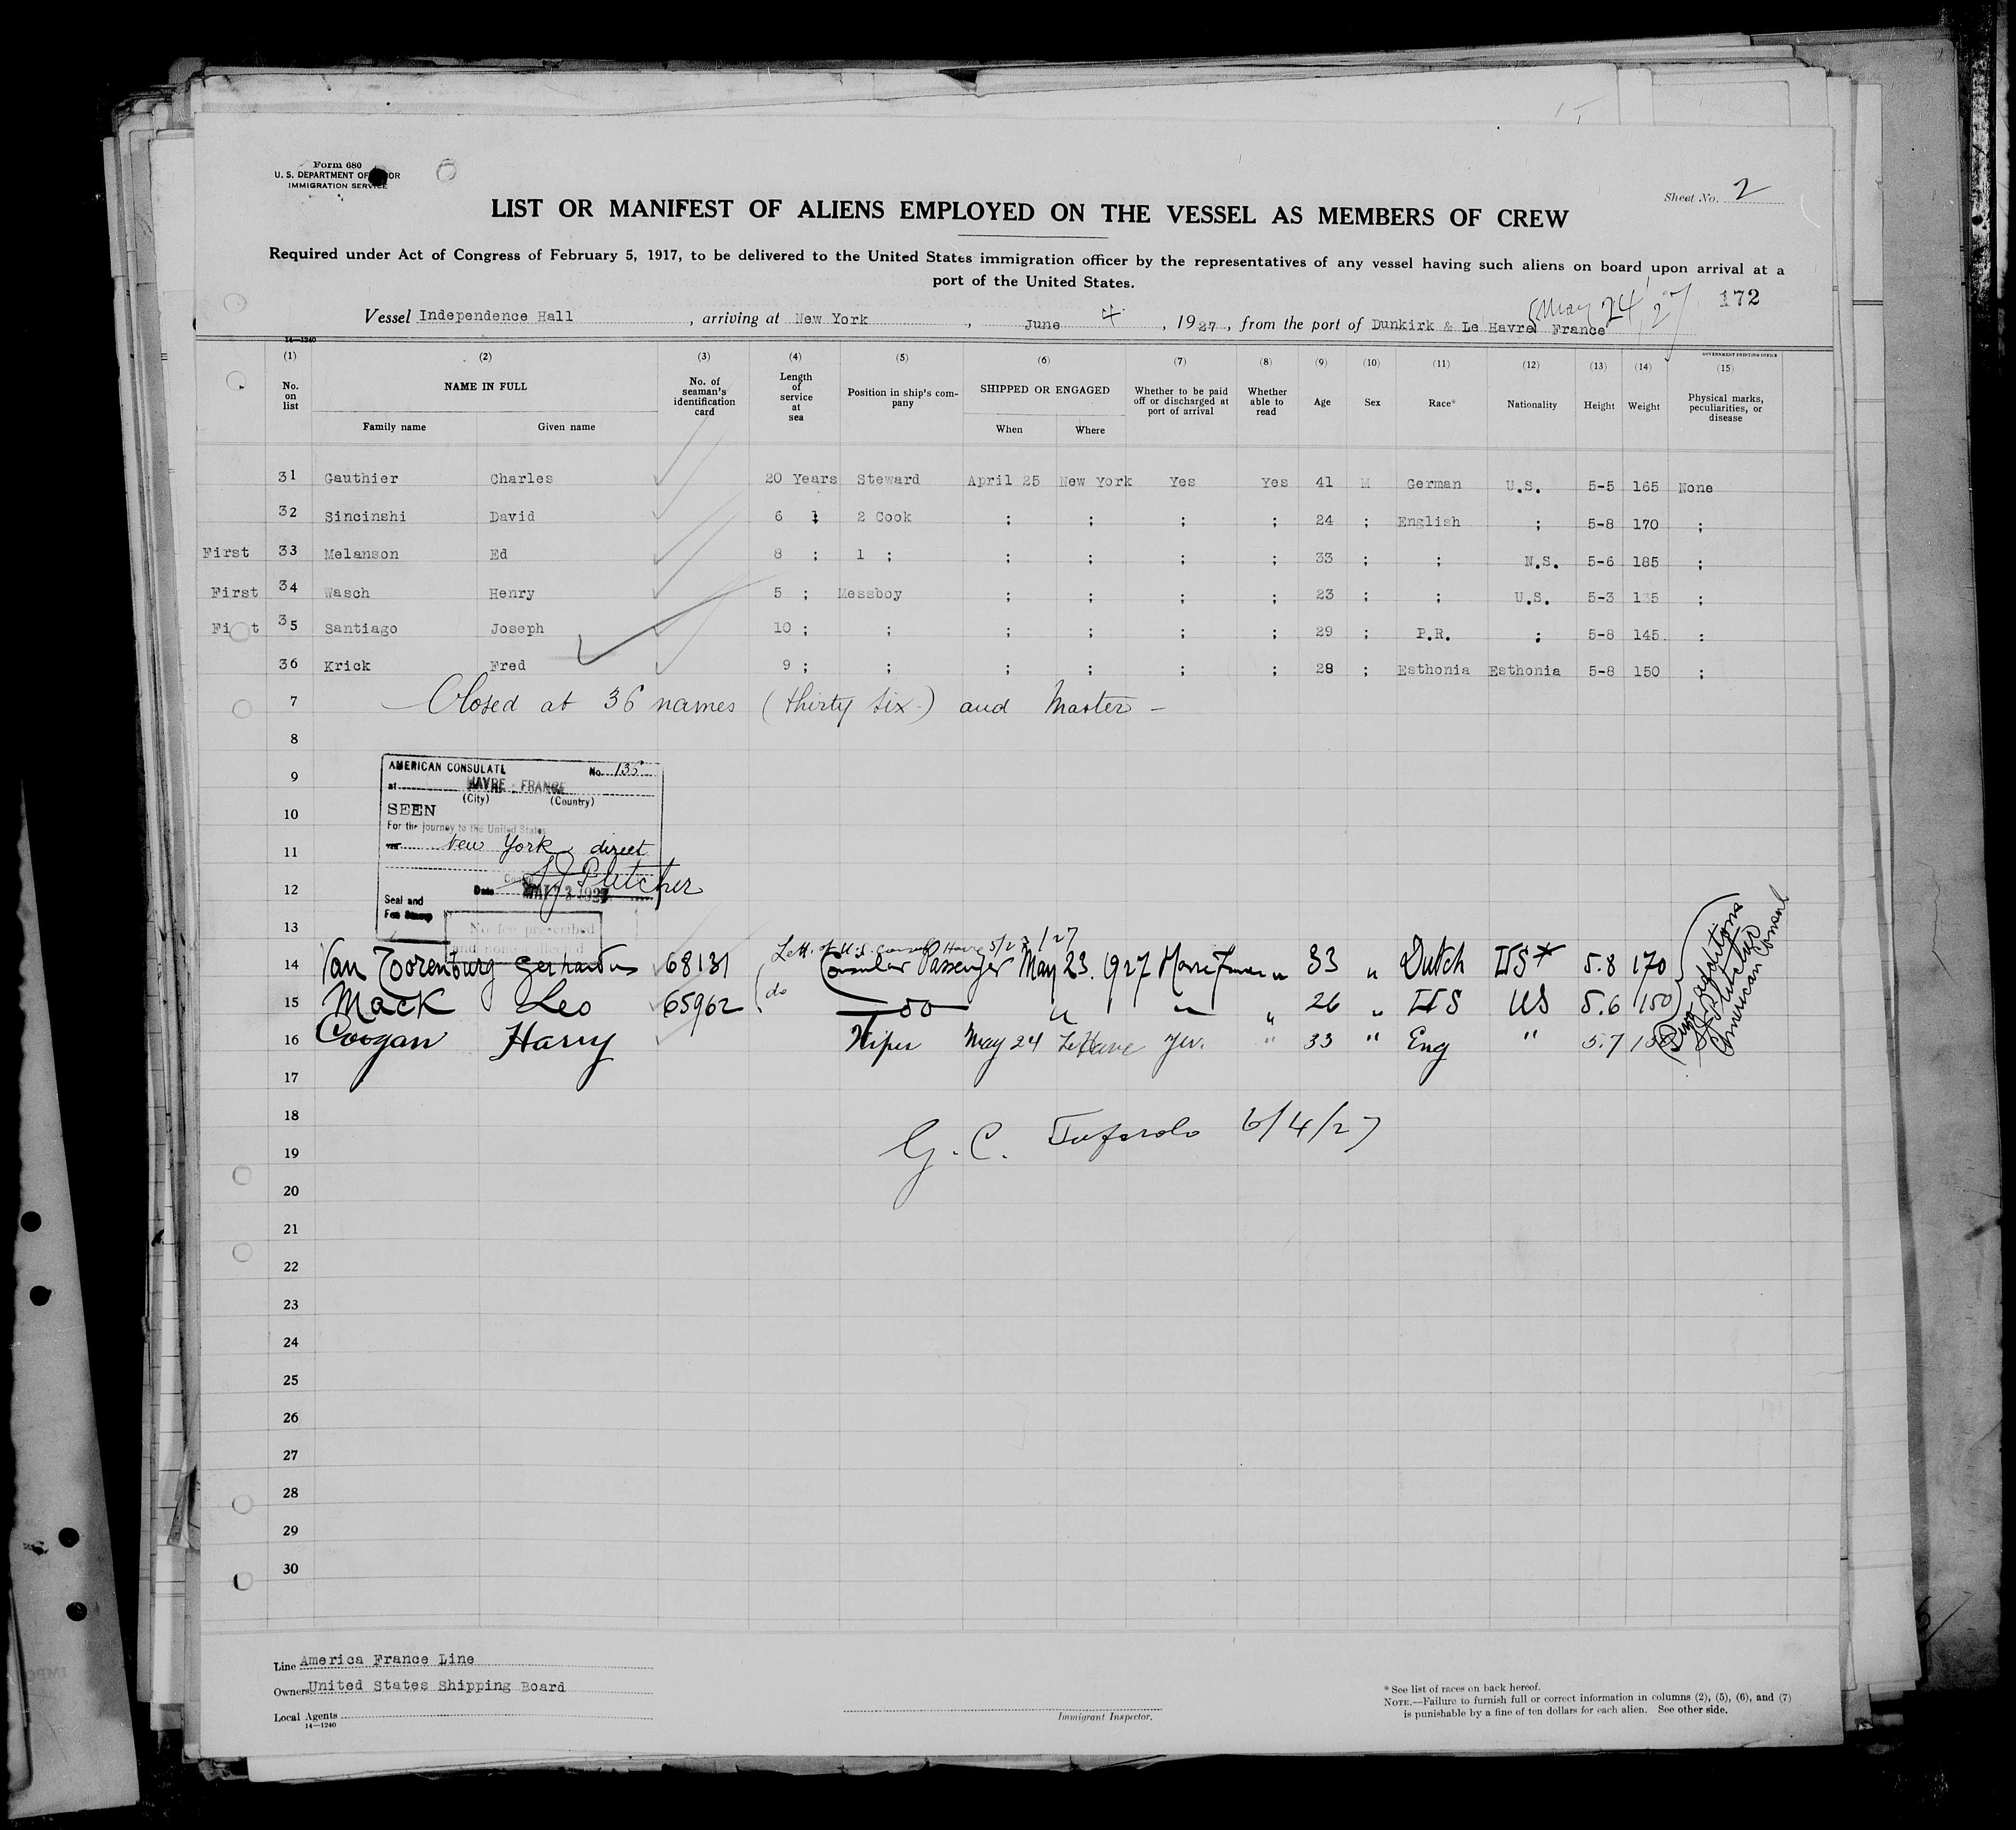 Form 680
U. S. DEPARTMENT OF LABOR
IMMIGRATION SERVICE
Sheet No. 2
LIST OR MANIFEST OF ALIENS EMPLOYED ON THE VESSEL AS MEMBERS OF CREW
Required under Act of Congress of February 5, 1917, to be delivered to the United States immigration officer by the representatives of any vessel having such aliens on board upon arrival at a
port of the United States.
(May 24, 27 172
Vessel Independence Hall, arriving at New York, June 4, 1927, from the port of Dunkirk & Le Havre France
14—1240 GOVERNMENT PRINTING OFFICE
(1) (2) (3) (4) (5) (6) (7) (8) (9) (10) (11) (12) (13) (14) (15)
No. on list NAME IN FULL Family name Given name No. of seaman's identification card Length of service at sea Position in ship's company SHIPPED OR ENGAGED When Where Whether to be paid off or discharged at port of arrival Whether able to read Age Sex Race* Nationality Height Weight Physical marks, peculiarities, or disease
31 Gauthier Charles 20 Years Steward April 25 New York Yes Yes 41 M German U.S. 5-5 165 None
32 Sincinshi David 6 ; 2 Cook ; ; ; ; 24 ; English ; 5-8 170 ;
First 33 Melanson Ed 8 ; 1 ; ; ; ; ; 33 ; ; N.S. 5-6 185 ;
First 34 Wasch Henry 5 ; Messboy ; ; ; ; 23 ; ; U.S. 5-3 135 ;
Fi t 35 Santiago Joseph 10 ; ; ; ; ; ; 29 ; P.R. ; 5-8 145 :
36 Krick Fred 9 ; ; ; ; ; ; 28 ; Esthonia Esthonia 5-8 150 ;
7 — Closed at 36 names (thirty six) and Master —
8
AMERICAN CONSULATE No. 135
9
at HAVRE - FRANCE
(City) (Country)
10 SEEN
For the journey to the United States
11 New York direct
Pletcher
12 Date MAY 23 1927
Seal and
Fee Stamp
13 No fee prescribed
and none collected
Lett. of U.S. Consul Havre 5/23/27
14 Van Toorenburg Gerhardus 68131 Consular Passenger May 23. 1927 Havre France " 33 " Dutch US* 5.8 170
15 Mack Leo 65962 do — do — " " " 26 " US US 5.6 150
16 Coogan Harry Wiper May 24 Le Havre Yes. " 33 " Eng " 5.7 150
additions
Pletcher
American Consul
17
18
G. C. 6/4/27
19
20
21
22
23
24
25
26
27
28
29
30
Line America France Line
Owners United States Shipping Board
Local Agents
14—1240
Immigrant Inspector.
* See list of races on back hereof.
NOTE.—Failure to furnish full or correct information in columns (2), (5), (6), and (7)
is punishable by a fine of ten dollars for each alien. See other side.